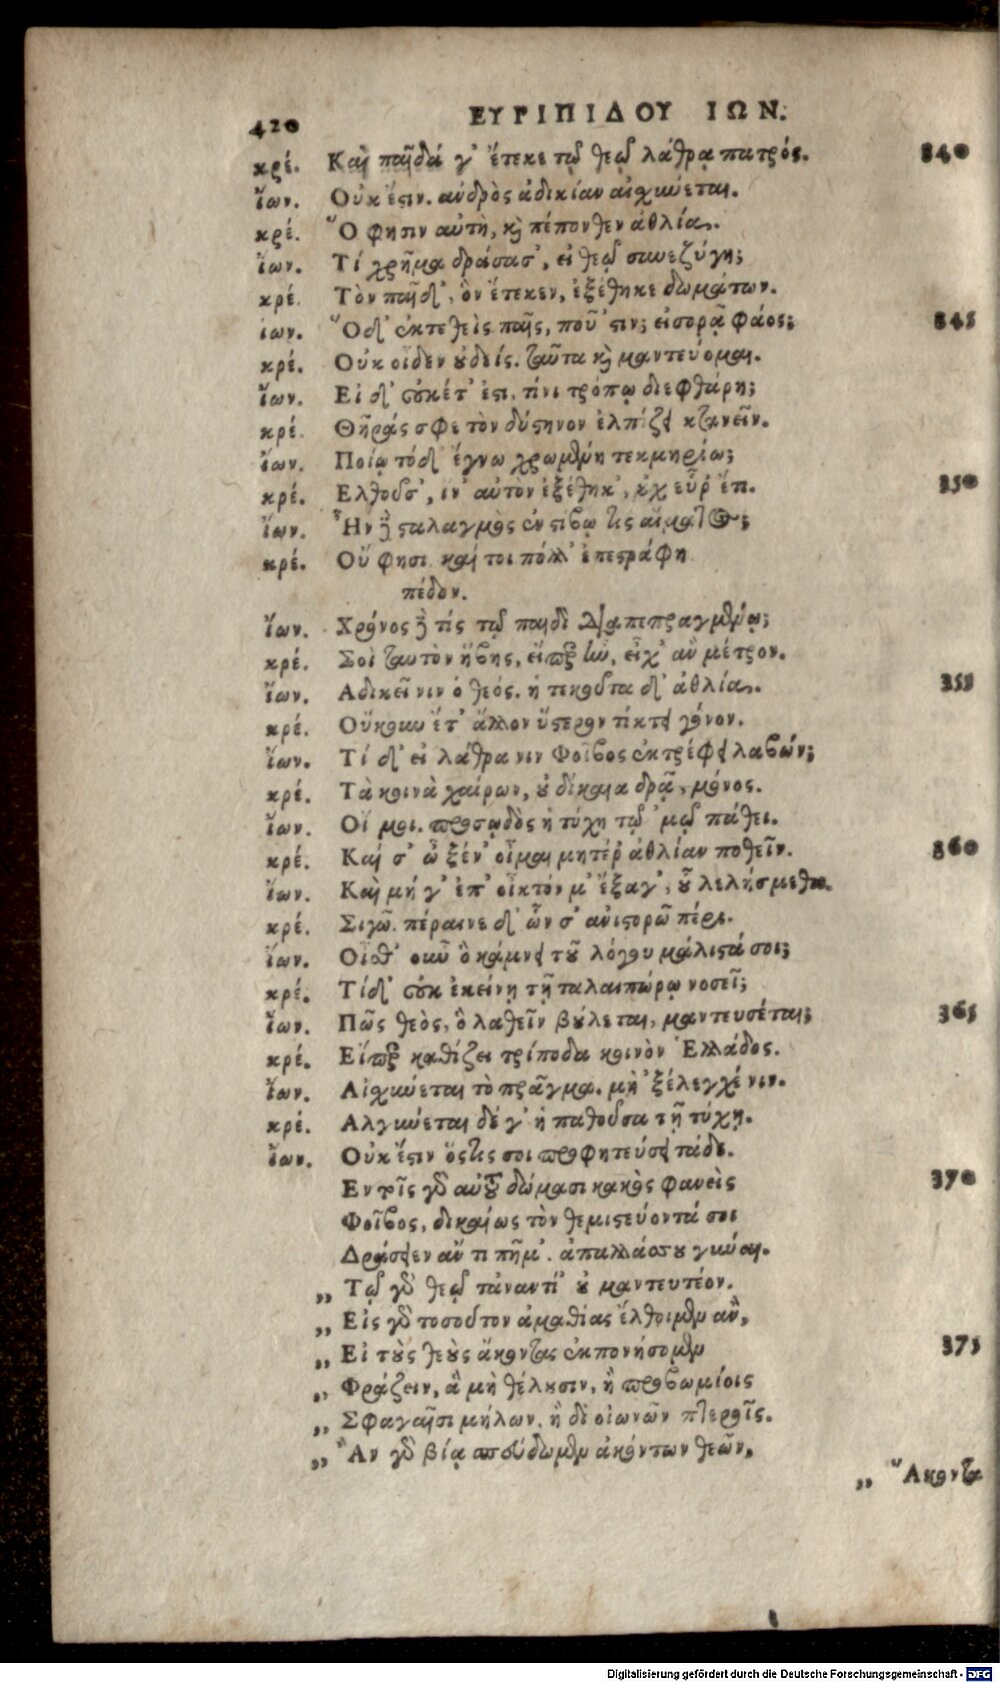 420 ΕΥΡΙΠΙΔΟΥ ΙΩΝ.
κρέ. Καὶ παῖδά γ' ἔτεκε τῷ θεῷ λάθρᾳ πατρός. 340
ἴων. Οὐκ ἔστιν. ἀνδρὸς ἀδικίαν αἰσχύνεται.
κρέ. Ὅ φησιν αὐτὴ, καὶ πέπονθεν ἀθλία.
ἴων. Τί χρῆμα δράσασ', εἰ θεῷ συνεζύγη;
κρέ. Τὸν παῖδ', ὃν ἔτεκεν, ἐξέθηκε δωμάτων.
ἴων. Ὅδ' ἐκτεθεὶς παῖς, ποῦ 'στιν; εἰσορᾷ φάος; 345
κρέ. Οὐκ οἶδεν οὐδείς. ταῦτα καὶ μαντεύομαι.
ἴων. Εἰ δ' οὐκέτ' ἔστι, τίνι τρόπῳ διεφθάρη;
κρέ. Θῆράς σφε τὸν δύστηνον ἐλπίζει κτανεῖν.
ἴων. Ποίῳ τόδ' ἔγνω χρωμένη τεκμηρίῳ;
κρέ. Ελθοῦσ', ἵν' αὐτὸν ἐξέθηκ', οὐχ εὗρ' ἔτι. 350
ἴων. Ἦν δὲ σταλαγμὸς ἐν στίβῳ τις αἵματος;
κρέ. Οὔ φησι. καί τοι πόλλ' ἐπεστράφη
πέδον.
ἴων. Χρόνος δὲ τίς τῷ παιδὶ διαπεπραγμένῳ;
κρέ. Σοὶ ταυτὸν ἥβης, εἴπερ ἦν, εἶχ' ἂν μέτρον.
ἴων. Αδικεῖ νιν ὁ θεός. ἡ τεκοῦσα δ' ἀθλία. 355
κρέ. Οὔκουν ἔτ' ἄλλον ὕστερον τίκτει γόνον.
ἴων. Τί δ' εἰ λάθρα νιν Φοῖβος ἐκτρέφει λαβών;
κρέ. Τὰ κοινὰ χαίρων, οὐ δίκαια δρᾷ, μόνος.
ἴων. Οἴ μοι. προσῳδὸς ἡ τύχη τῷ 'μῷ πάθει.
κρέ. Καί σ' ὦ ξέν' οἶμαι μητέρ' ἀθλίαν ποθεῖν. 360
ἴων. Καὶ μή γ' ἐπ' οἶκτόν μ' ἔξαγ', οὗ λελήσμεθα.
κρέ. Σιγῶ. πέραινε δ' ὧν σ' ἀνιστορῶ πέρι.
ἴων. Οἶσθ' οὖν ὃ κάμνει τοῦ λόγου μάλιστά σοι;
κρέ. Τί δ' οὐκ ἐκείνῃ τῇ ταλαιπώρῳ νοσεῖ;
ἴων. Πῶς θεὸς, ὃ λαθεῖν βούλεται, μαντευσέται; 365
κρέ. Εἴπερ καθίζει τρίποδα κοινὸν Ἑλλάδος.
ἴων. Αἰσχύνεται τὸ πρᾶγμα. μὴ 'ξέλεγχέ νιν.
κρέ. Αλγύνεται δέ γ' ἡ παθοῦσα τῇ τύχῃ.
ἴων. Οὐκ ἔστιν ὅστις σοι προφητεύσει τάδε.
Εν τοῖς γὰρ αὑτοῦ δώμασι κακὸς φανεὶς 370
Φοῖβος, δικαίως τὸν θεμιστεύοντά σοι
Δράσειεν ἄν τι πῆμ'. ἀπαλλάσσου γύναι.
„ Τῷ γὰρ θεῷ τἀναντί' οὐ μαντευτέον.
„ Εἰς γὰρ τοσοῦτον ἀμαθίας ἔλθοιμεν ἂν,
„ Εἰ τοὺς θεοὺς ἄκοντας ἐκπονήσομεν 375
„ Φράζειν, ἃ μὴ θέλουσιν, ἢ προβωμίοις
„ Σφαγαῖσι μήλων, ἢ δι' οἰωνῶν πτεροῖς.
„ Ἂν γὰρ βίᾳ σπεύδωμεν ἀκόντων θεῶν,
„ Ἄκοντα
Digitalisierung gefördert durch die Deutsche Forschungsgemeinschaft - DFG